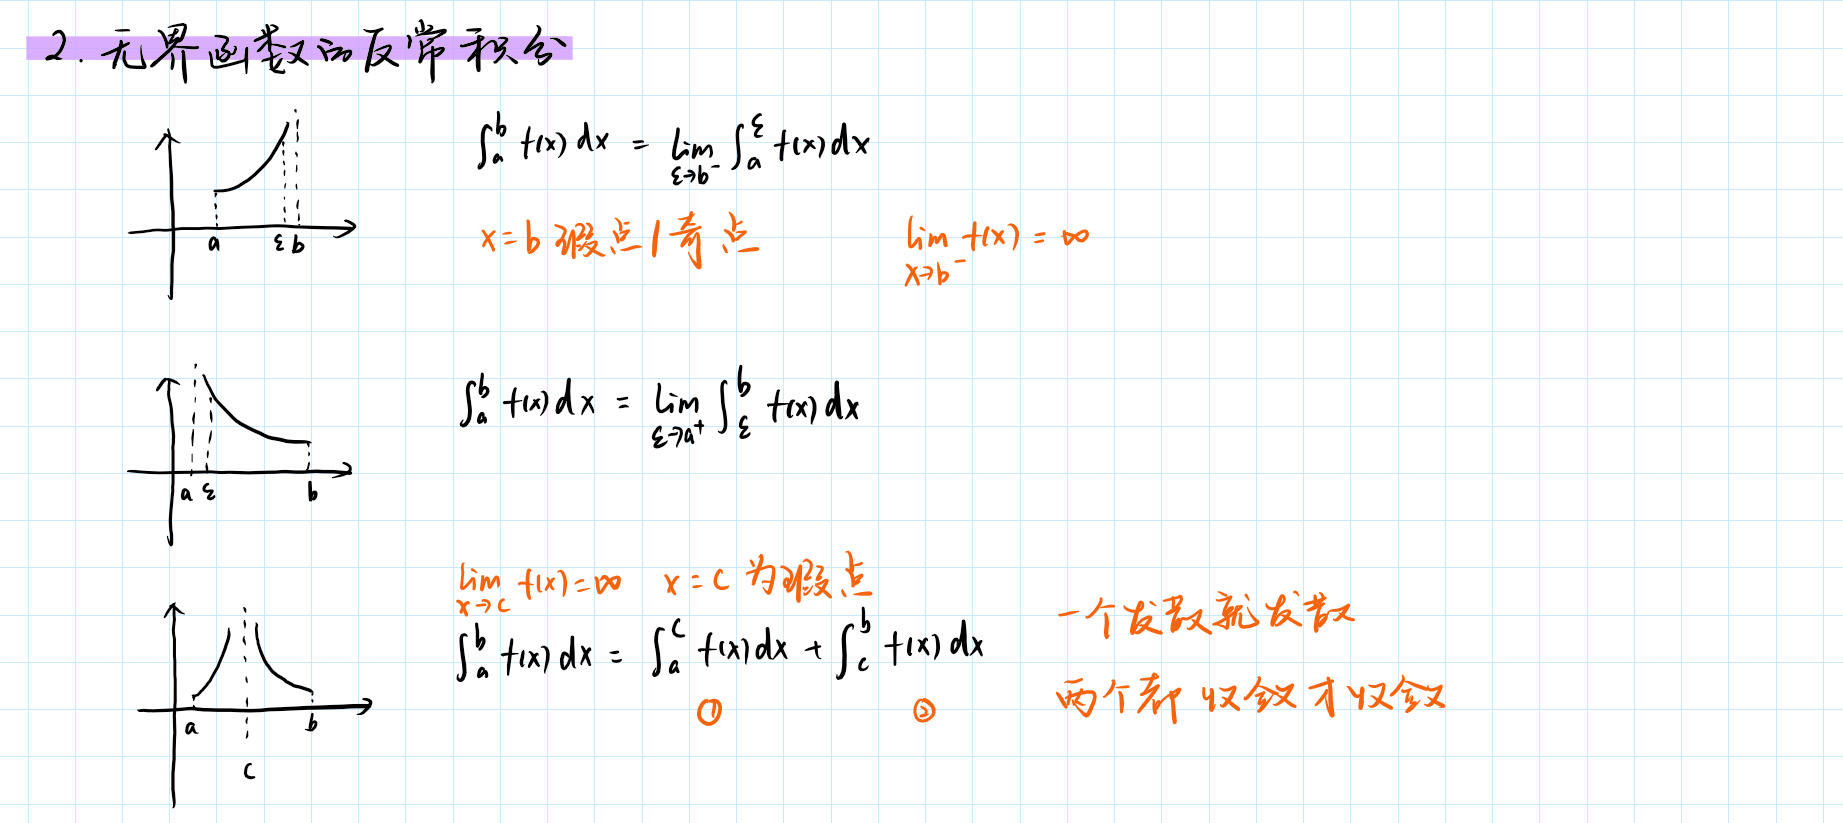 2. 无界函数的反常积分
∫_a^b f(x) dx = lim_{ε→b⁻} ∫_a^ε f(x) dx
x=b 瑕点/奇点 lim_{x→b⁻} f(x) = ∞
a ε b
∫_a^b f(x) dx = lim_{ε→a⁺} ∫_ε^b f(x) dx
a ε b
lim_{x→c} f(x) = ∞ x = c 为瑕点
∫_a^b f(x) dx = ∫_a^c f(x) dx + ∫_c^b f(x) dx
① ②
一个发散就发散
两个都收敛才收敛
a b
c